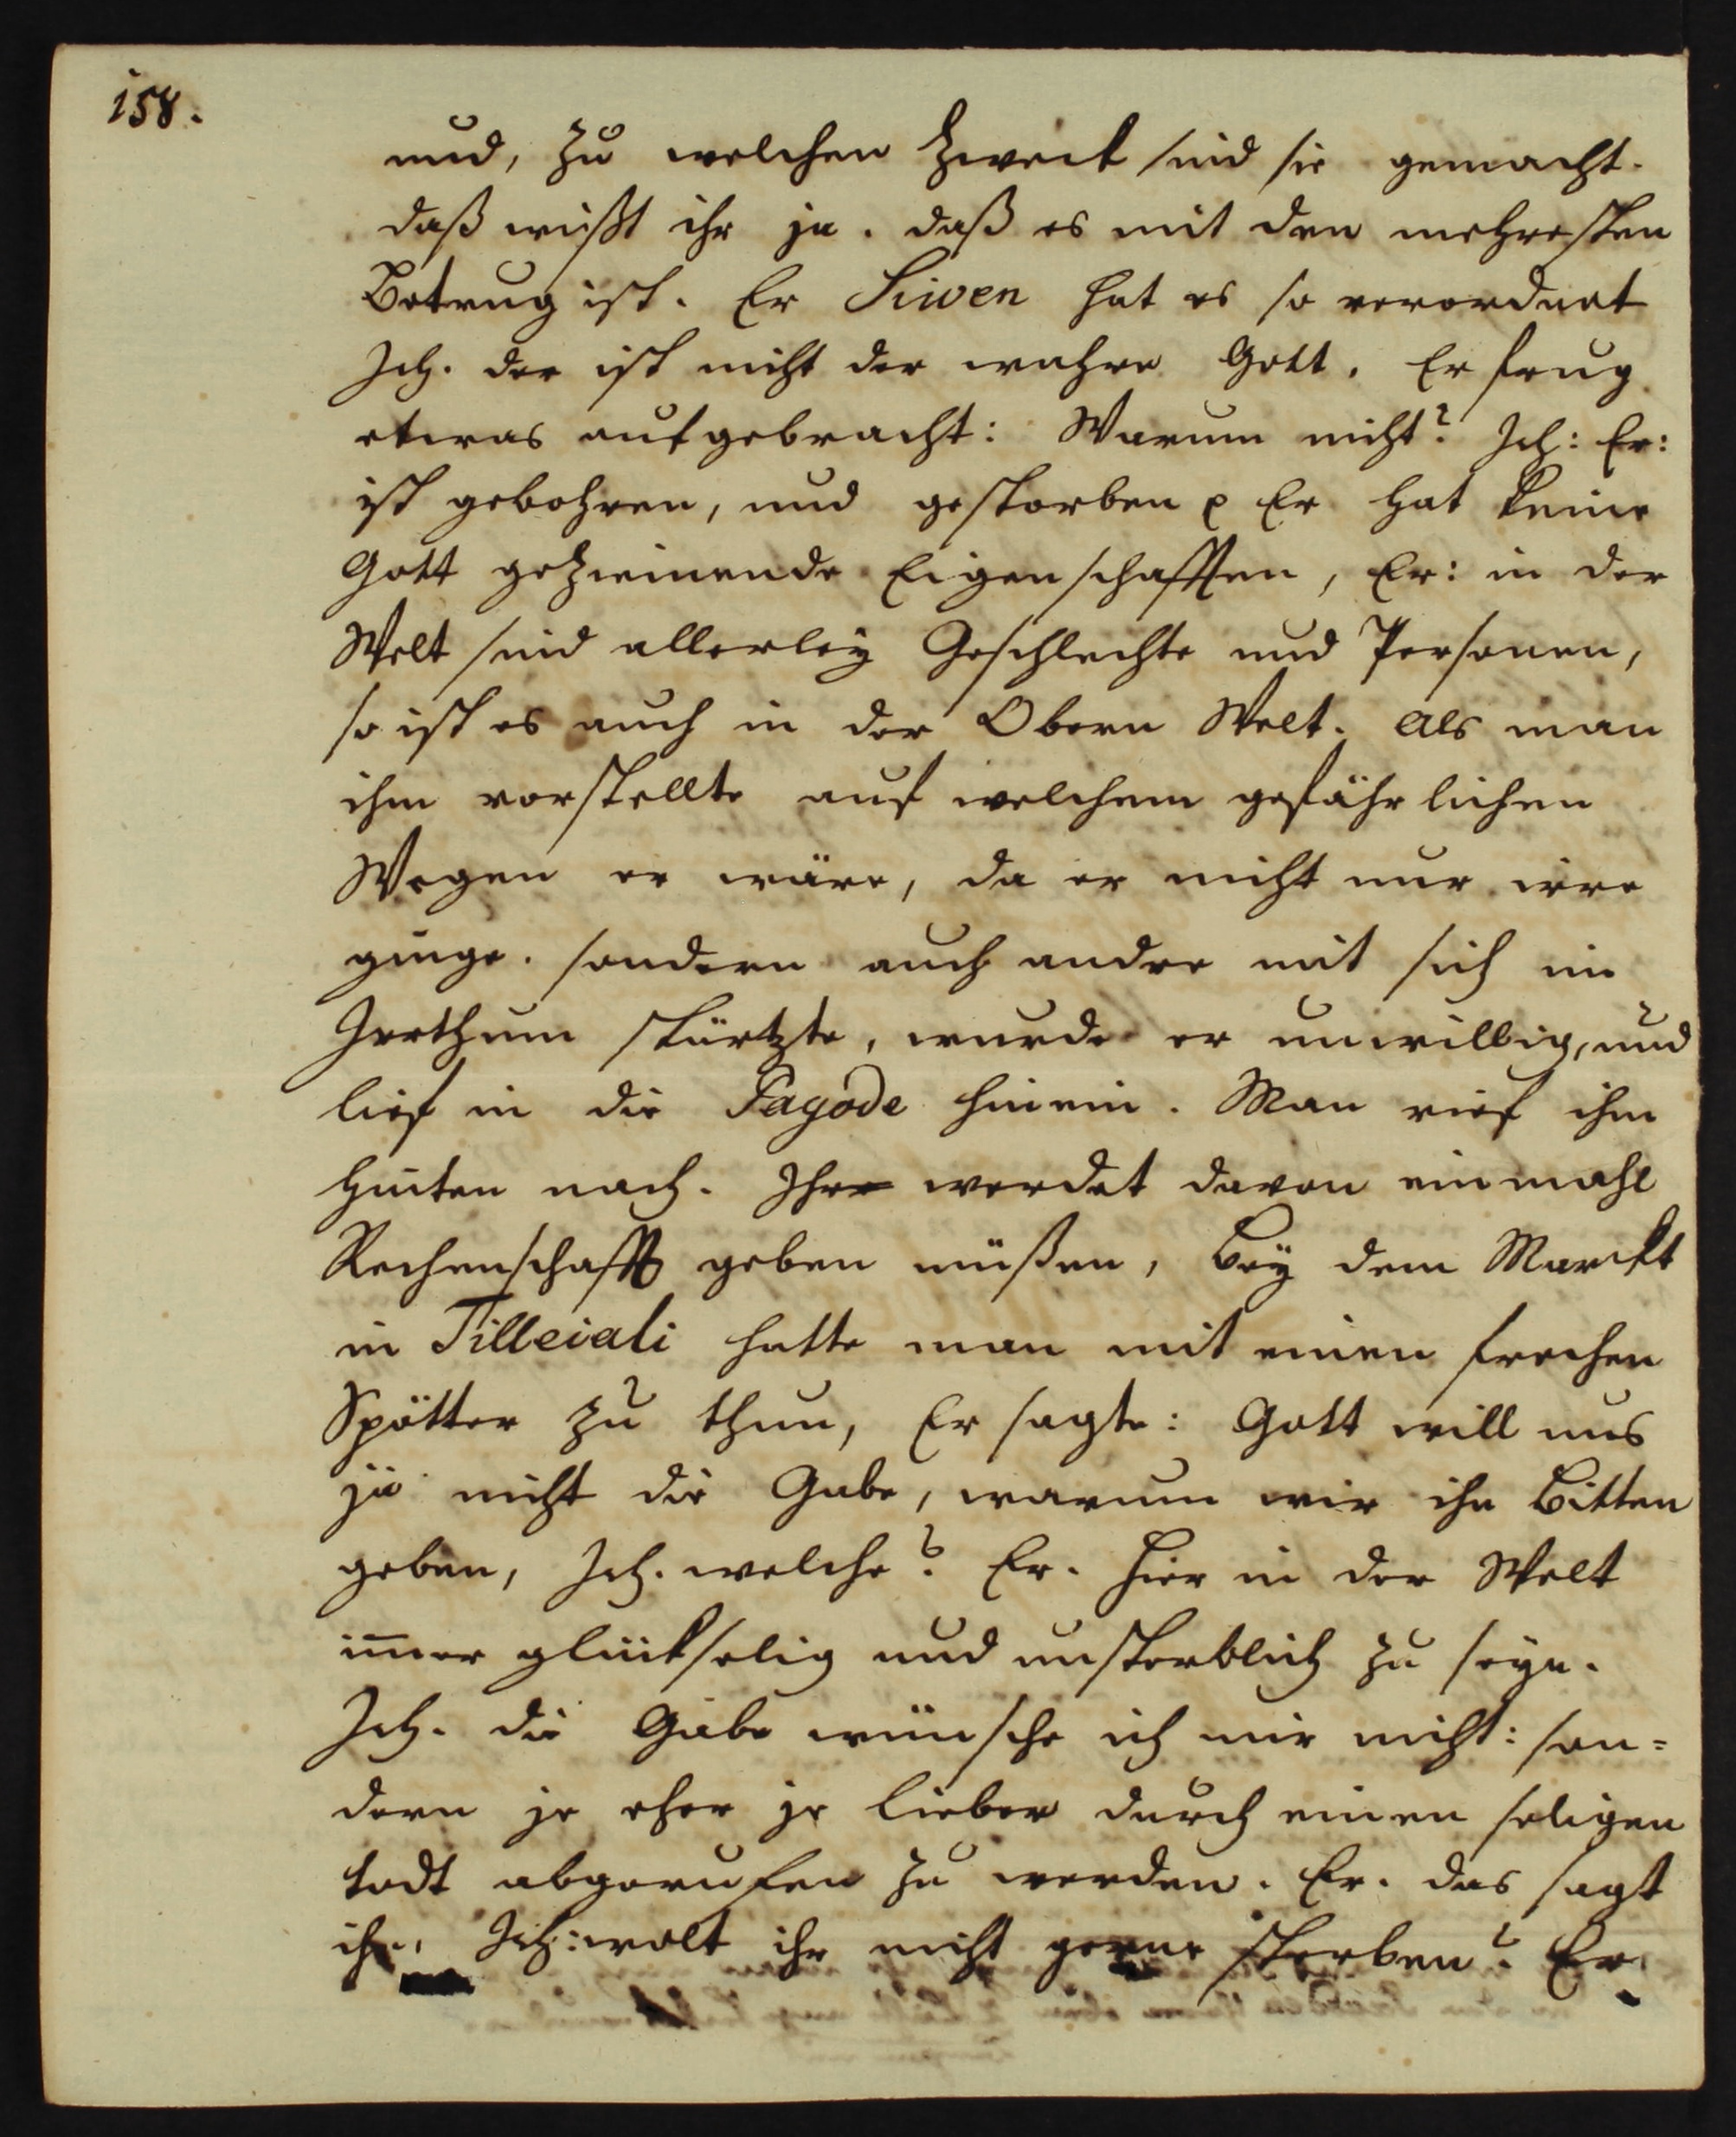 158.
und, zu welchen Zweck sind sie gemacht.
daß wißt ihr ja. daß es mit den mehresten
Betrug ist. Er Siwen hat es so verordnet
Ich. der ist nicht der wahre Gott. Er frug
etwas aufgebracht: Warum nicht? Ich: Er:
ist gebohren, und gestorben p Er hat keine
Gott geziemende Eigenschafften, Er: in der
Welt sind allerley Geschlechte und Personen,
so ist es auch in der Obern Welt. Als man
ihm vorstellte auf welchem gefährlichen
Wegen er wäre, da er nicht nur irre
ginge. sondern auch andre mit sich im
Irrthum stürtzte, wurde er unwillig, und
lief in die Pagode hinein. Man rief ihm
hinten nach. Ihr werdet davon einmahl
Rechenschafft geben müßen, Bey dem Marckt
in Tilleiali hatte man mit einen frechen
Spötter zu thun, Er sagte: Gott will uns
ja nicht die Gabe, warum wir ihn Bitten
geben, Ich. welche? Er. hier in der Welt
im̄er glückselig und unsterblich zu seyn.
Ich. die Gabe wünsche ich mir nicht: son=
dern je eher je lieber durch einen seligen
todt abgerufen zu werden. Er. das sagt
ihr, Ich: wolt ihr nicht gerne sterben? Er.